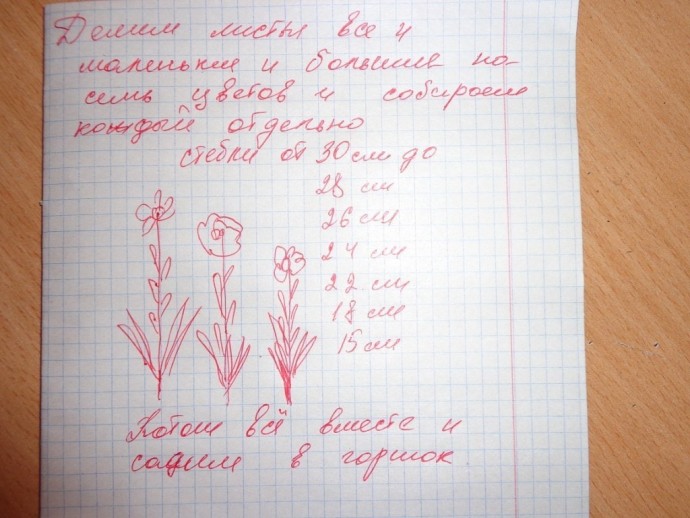 Делим листы все и
маленькие и большие на
семь цветов и собираем
каждой отдельно
стебли от 30 см до
28 см
26 см
24 см
22 см
18 см
15 см
Потом всё вместе и
садим в горшок